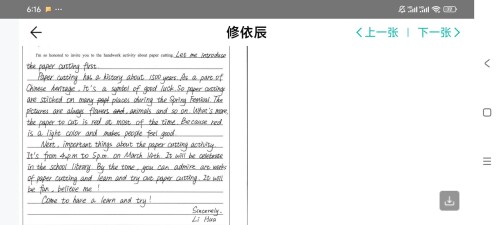 6:16
修依辰
上一张 | 下一张
I'm so honored to invite you to the handwork activity about paper cutting. Let me introduce
the paper cutting first.
Paper cutting has a history about 1500 years. As a part of
Chinese heritage, it's a symbol of good luck. So paper cuttings
are sticked on many places during the Spring Festival. The
pictures are always flowers and animals and so on. What's more,
the paper to cut is red at most of the time. Because red
is a light color and makes people feel good.
Next, important things about the paper cutting activity.
It's from 4p.m to 5p.m on March 10th. It will be celebrate
in the school library. By the time, you can admire art works
of paper cutting and learn and try out paper cutting. It will
be fun, believe me!
Come to have a learn and try!
Sincerely,
Li Hua